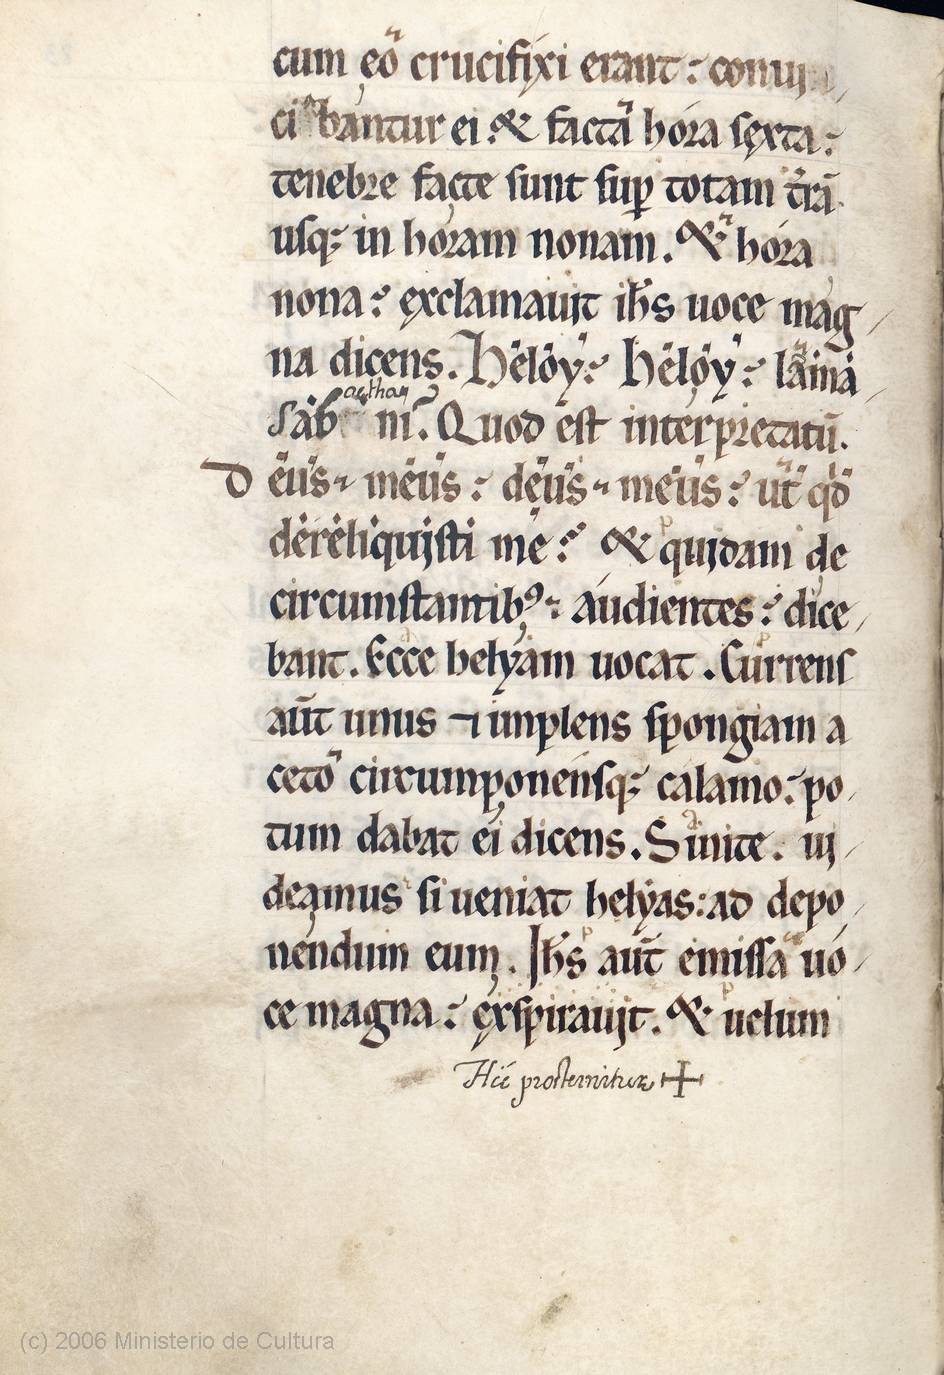 cum eo crucifixi erant: conui
ci bantur ei. & facta hora sexta:
tenebre facte sunt sup̱ totam t̄rā
usq; in horam nonam. & hora
nona: exclamauit ih̄s uoce mag
na dicens. Heloy: heloy: lama
sab acthani ni. Quod est interpretatū.
deus meus: deus meus: ut qd̄
dereliquisti me: & quidam de
circumstantibꝰ: audientes: dice
bant. Ecce helyam uocat. Currens
aūt unus ⁊ implens spongiam a
ceto circumponensq; calamo: po
tum dabat ei dicens. Sinite. ui
deamus si ueniat helyas: ad depo
nendum eum. Ih̄s aūt emissa uo
ce magna: exspirauit. & uelum
Hic prosternitur +
(c) 2006 Ministerio de Cultura